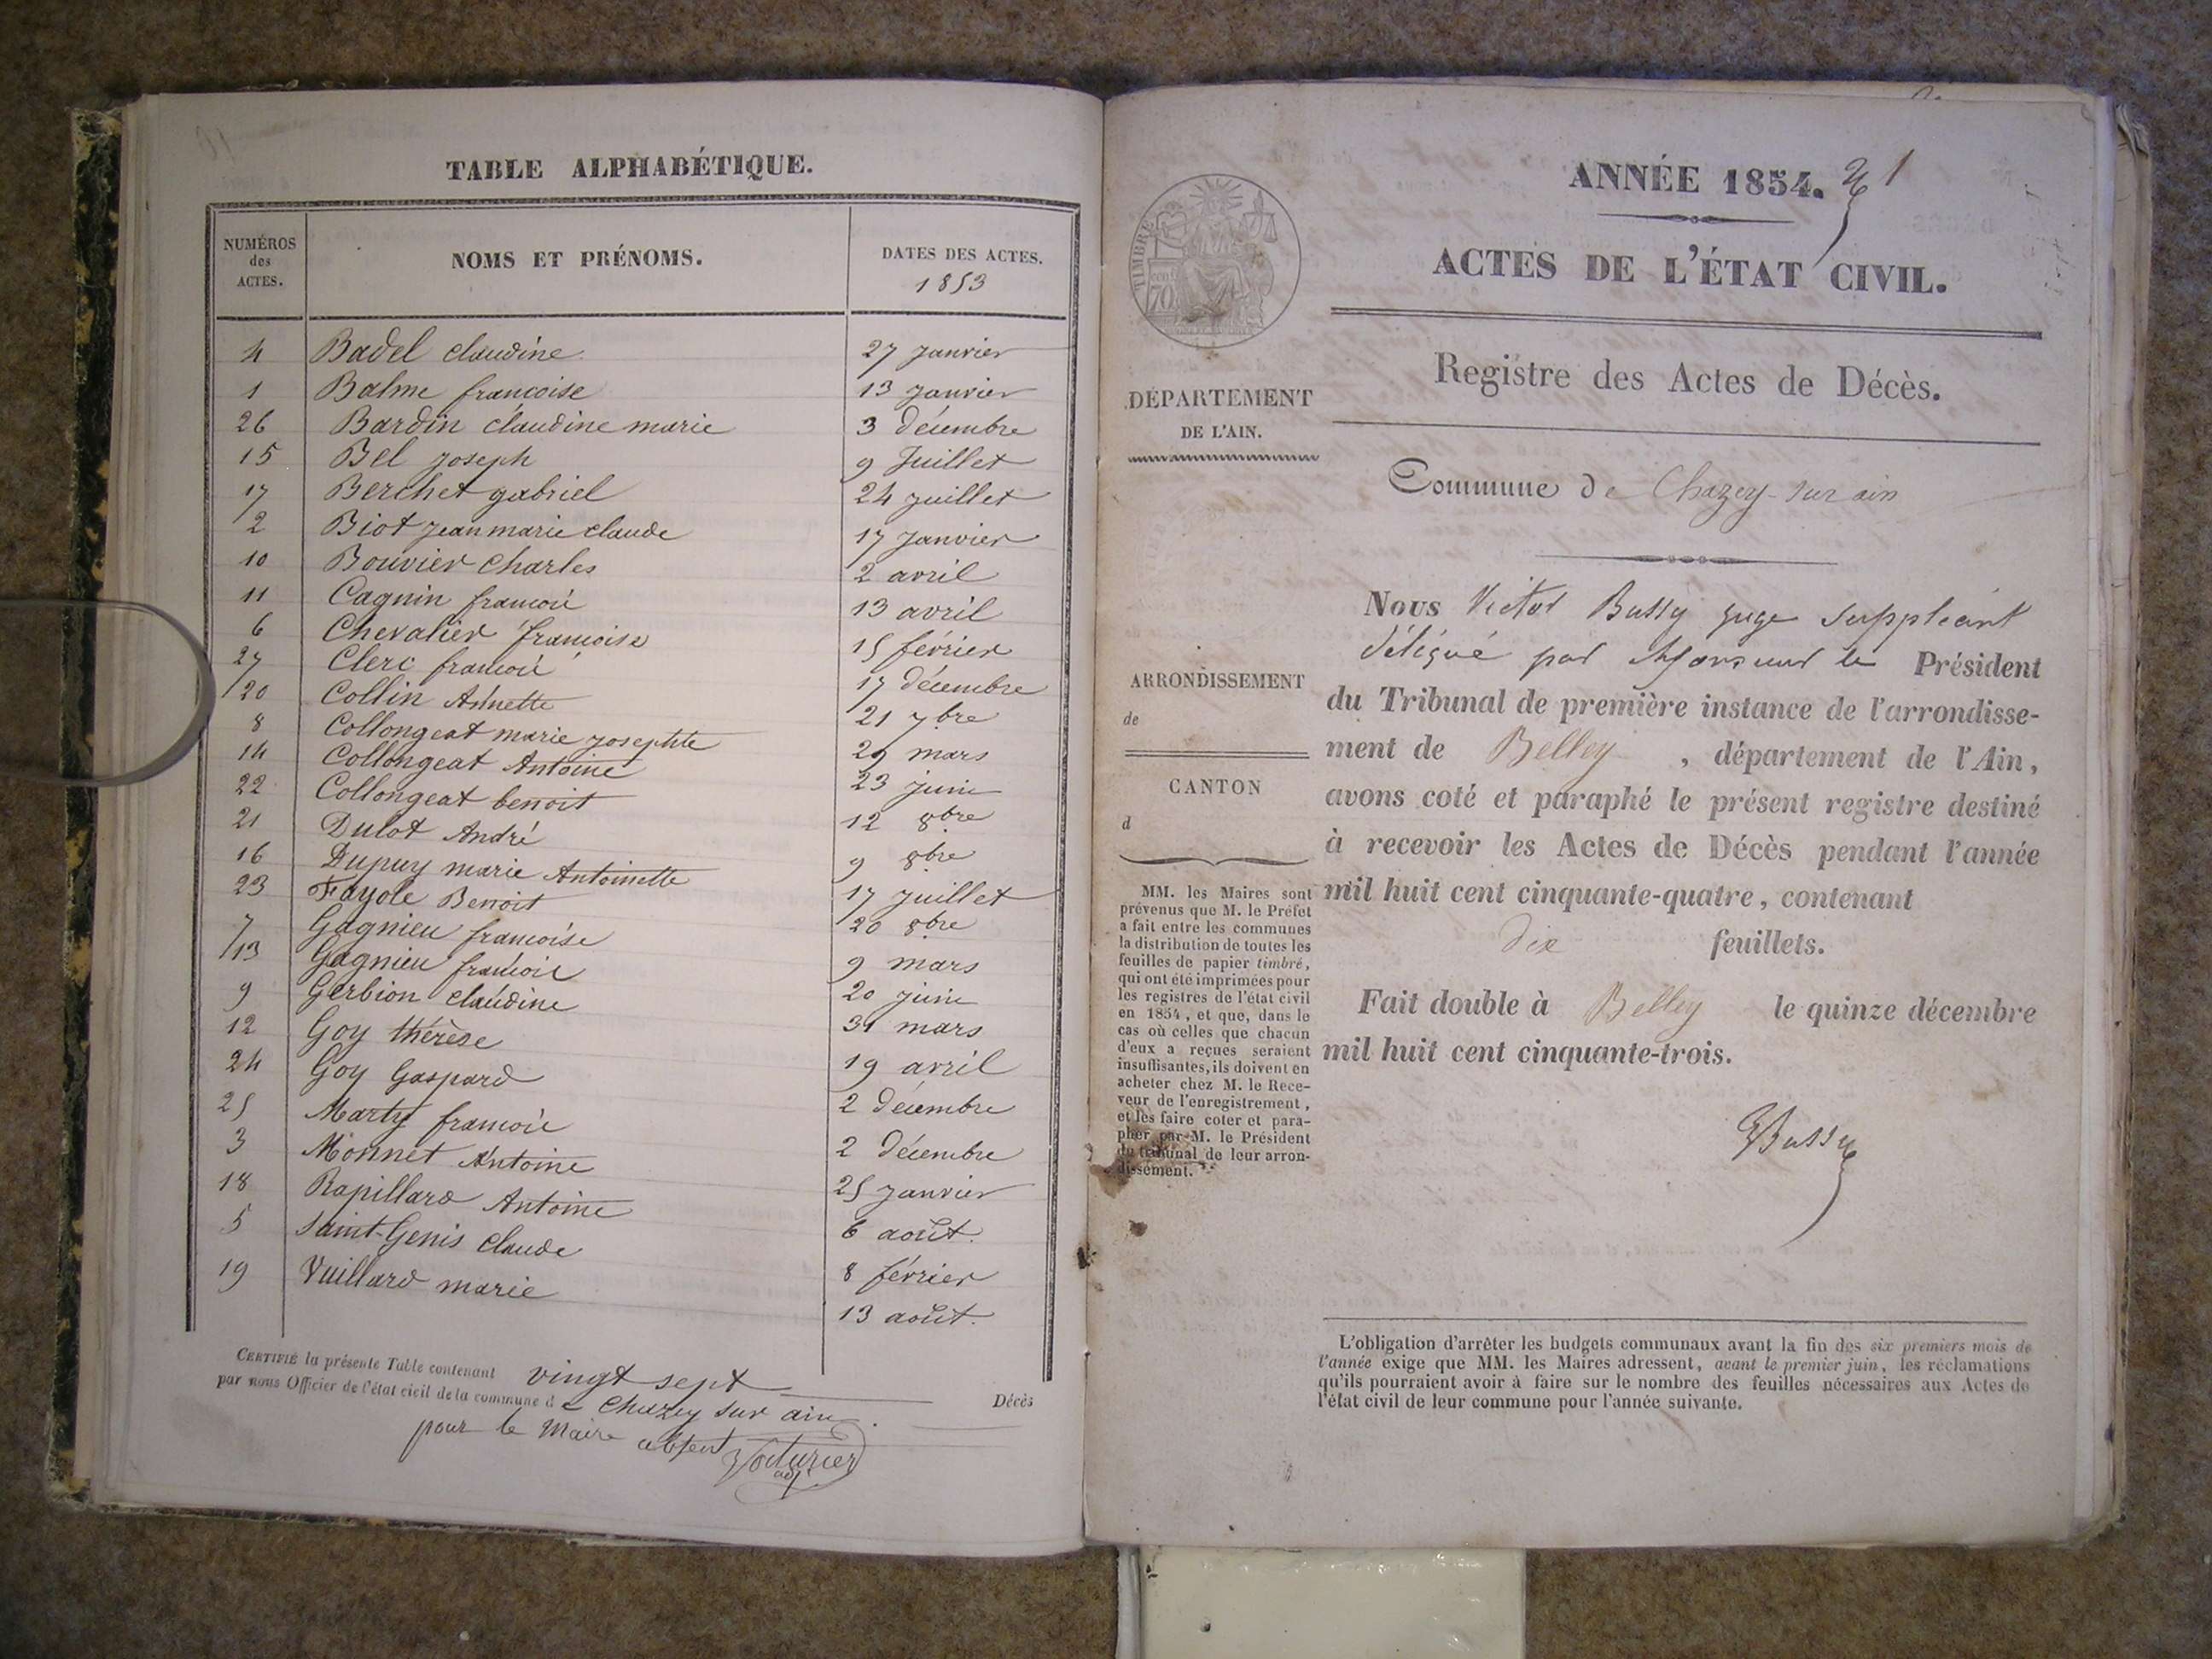 TABLE ALPHABÉTIQUE.
NUMÉROS des ACTES. NOMS ET PRÉNOMS. DATES DES ACTES. 1853
4 Badel claudine 27 janvier
1 Balme francoise 13 janvier
26 Bardin claudine marie 3 décembre
15 Bel joseph 9 Juillet
17 Berchet gabriel 24 juillet
2 Biot jean marie claude 17 janvier
10 Bouvier Charles 2 avril
11 Cagnin francois 13 avril
6 Chevalier francoise 15 février
27 Clerc francois 17 décembre
20 Collin Annette 21 7bre
8 Collongeat marie josephte 29 mars
14 Collongeat Antoine 23 juin
22 Collongeat benoit 12 8bre
21 Dulot André 9 8bre
16 Dupuy marie Antoinette 17 juillet
23 Fayole Benoit 20 8bre
7 Gagnieu francoise 9 mars
13 Gagnieu francois 20 juin
9 Gerbion claudine 31 mars
12 Goy thérèse 19 avril
24 Goy Gaspard 2 décembre
25 Marty francois 2 décembre
3 Monnet Antoine 25 janvier
18 Rapillard Antoine 6 août.
5 Saint-Genis Claude 8 février
19 Vuillard marie 13 août.
CERTIFIÉ la présente Table contenant vingt sept Décès
par nous Officier de l'état civil de la commune de Chazey sur ain
pour le Maire absent
Voiturier
adj.
ANNÉE 1854. 1
ACTES DE L'ÉTAT CIVIL.
Registre des Actes de Décès.
TIMBRE
70
DÉPARTEMENT
DE L'AIN.
ARRONDISSEMENT
de
CANTON
d
MM. les Maires sont
prévenus que M. le Préfet
a fait entre les communes
la distribution de toutes les
feuilles de papier timbré,
qui ont été imprimées pour
les registres de l'état civil
en 1854, et que, dans le
cas où celles que chacun
d'eux a reçues seraient
insuffisantes, ils doivent en
acheter chez M. le Rece-
veur de l'enregistrement,
et les faire coter et para-
pher par M. le Président
du tribunal de leur arron-
dissement.
Commune de Chazey-sur ain
Nous Victor Bussy juge suppléant
délégué par Monsieur le Président
du Tribunal de première instance de l'arrondisse-
ment de Belley, département de l'Ain,
avons coté et paraphé le présent registre destiné
à recevoir les Actes de Décès pendant l'année
mil huit cent cinquante-quatre, contenant
dix feuillets.
Fait double à Belley le quinze décembre
mil huit cent cinquante-trois.
Bussy
L'obligation d'arrêter les budgets communaux avant la fin des six premiers mois de
l'année exige que MM. les Maires adressent, avant le premier juin, les réclamations
qu'ils pourraient avoir à faire sur le nombre des feuilles nécessaires aux Actes de
l'état civil de leur commune pour l'année suivante.